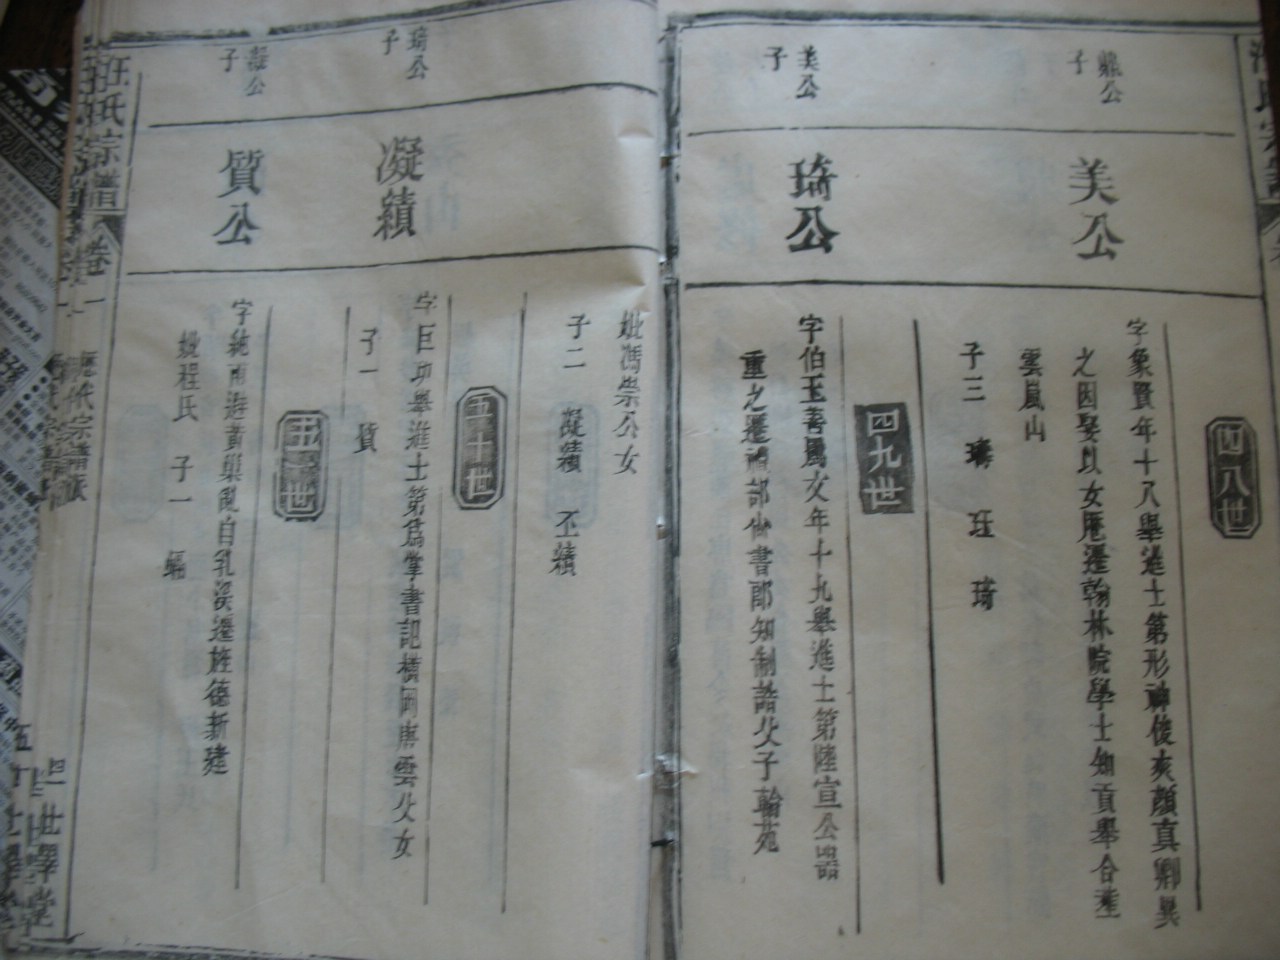 四八世
子
公
美公
字象賢年十八舉進士第形神俊爽顏真卿異
之因娶以女尾遷翰林院學士知貢舉合塟
雲嵐山
子三 璹 珏 琦
四九世
美公
子
琦公
字伯玉善屬文年十九舉進士第陸宣公器
重之遷禮部尚書郎知制誥父子翰苑
妣馮崇公女
子二 凝績 丕績
五十世
琦公
子
凝績
字巨功舉進士第為掌書記橫岡唐雲父女
子一 質
五一世
公
子
質公
字純甫遊黃巢亂自乳溪遷旌德新建
妣程氏 子一
汪氏宗譜
卷一
歷代宗譜族
世學堂